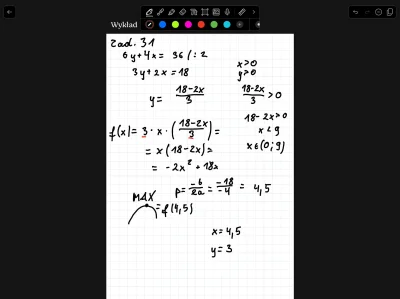 Wykład
Zad. 31
6y+4x = 36 /:2
3y+2x = 18
x>0
y>0
y = (18-2x)/3
(18-2x)/3 > 0
18-2x>0
x<9
x∈(0;9)
f(x) = 3·x·((18-2x)/3) =
= x(18-2x) =
= -2x² + 18x
p = -b/2a = -18/-4 = 4,5
MAX
= f(4,5)
x = 4,5
y = 3